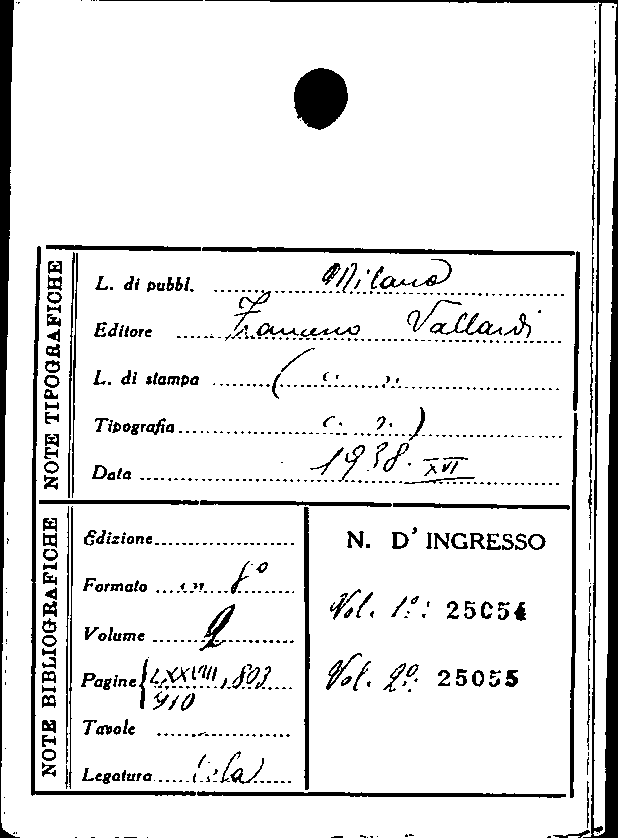 NOTE TIPOGRAFICHE
L. di pubbl. Milano
Editore Francesco Vallardi
L. di stampa ( c. s.
Tipografia c. s. )
Data 1938. XVI
NOTE BIBLIOGRAFICHE
Edizione
Formato in 8°
Volume 2
Pagine { LXXVIII, 803
910
Tavole
Legatura
N. D'INGRESSO
Vol. 1º: 25054
Vol. 2º: 25055